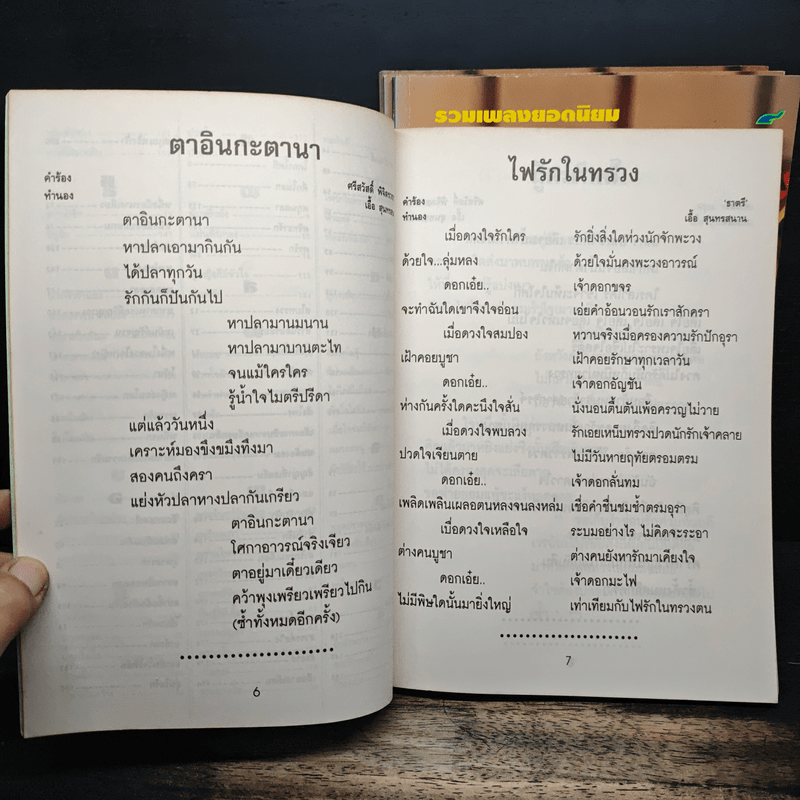 รวมเพลงยอดนิยม
๘
ตาอินกะตานา
คำร้อง ศรีสวัสดิ์
ทำนอง เอื้อ
ตาอินกะตานา
หาปลาเอามากินกัน
ได้ปลาทุกวัน
รักกันก็ปันกันไป
หาปลามานมนาน
หาปลามาบานตะไท
จนแม้ใครใคร
รู้น้ำใจไมตรีปรีดา
แต่แล้ววันหนึ่ง
เคราะห์มองขึงขมึงทึงมา
สองคนถึงครา
แย่งหัวปลาหางปลากันเกรียว
ตาอินกะตานา
โศกาอาวรณ์จริงเจียว
ตาอยู่มาเดี๋ยวเดียว
คว้าพุงเพรียวเพรียวไปกิน
(ซ้ำทั้งหมดอีกครั้ง)
6
ไฟรักในทรวง
คำร้อง 'ธาตรี'
ทำนอง เอื้อ สุนทรสนาน
เมื่อดวงใจรักใคร รักยิ่งสิ่งใดห่วงนักจักพะวง
ด้วยใจ...ลุ่มหลง ด้วยใจมั่นคงพะวงอาวรณ์
ดอกเอ๋ย.. เจ้าดอกขจร
จะทำฉันใดเขาจึงใจอ่อน เอ่ยคำอ้อนวอนรักเราสักครา
เมื่อดวงใจสมปอง หวานจริงเมื่อครองความรักปักอุรา
เฝ้าคอยบูชา เฝ้าคอยรักษาทุกเวลาวัน
ดอกเอ๋ย.. เจ้าดอกอัญชัน
ห่างกันครั้งใดคะนึงใจสั่น นั่งนอนตื้นตันเพ้อครวญไม่วาย
เมื่อดวงใจพบลวง รักเอยเหน็บทรวงปวดนักรักเจ้าคลาย
ปวดใจเจียนตาย ไม่มีวันหายฤทัยตรอมตรม
ดอกเอ๋ย.. เจ้าดอกลั่นทม
เพลิดเพลินเผลอตนหลงจนลงหล่ม เชื่อคำชื่นชมช้ำตรมอุรา
เบื่อดวงใจเหลือใจ ระบมอย่างไร ไม่คิดจะระอา
ต่างคนบูชา ต่างคนยังหารักมาเคียงใจ
ดอกเอ๋ย.. เจ้าดอกมะไฟ
ไม่มีพิษใดนั้นมายิ่งใหญ่ เท่าเทียมกับไฟรักในทรวงตน
7